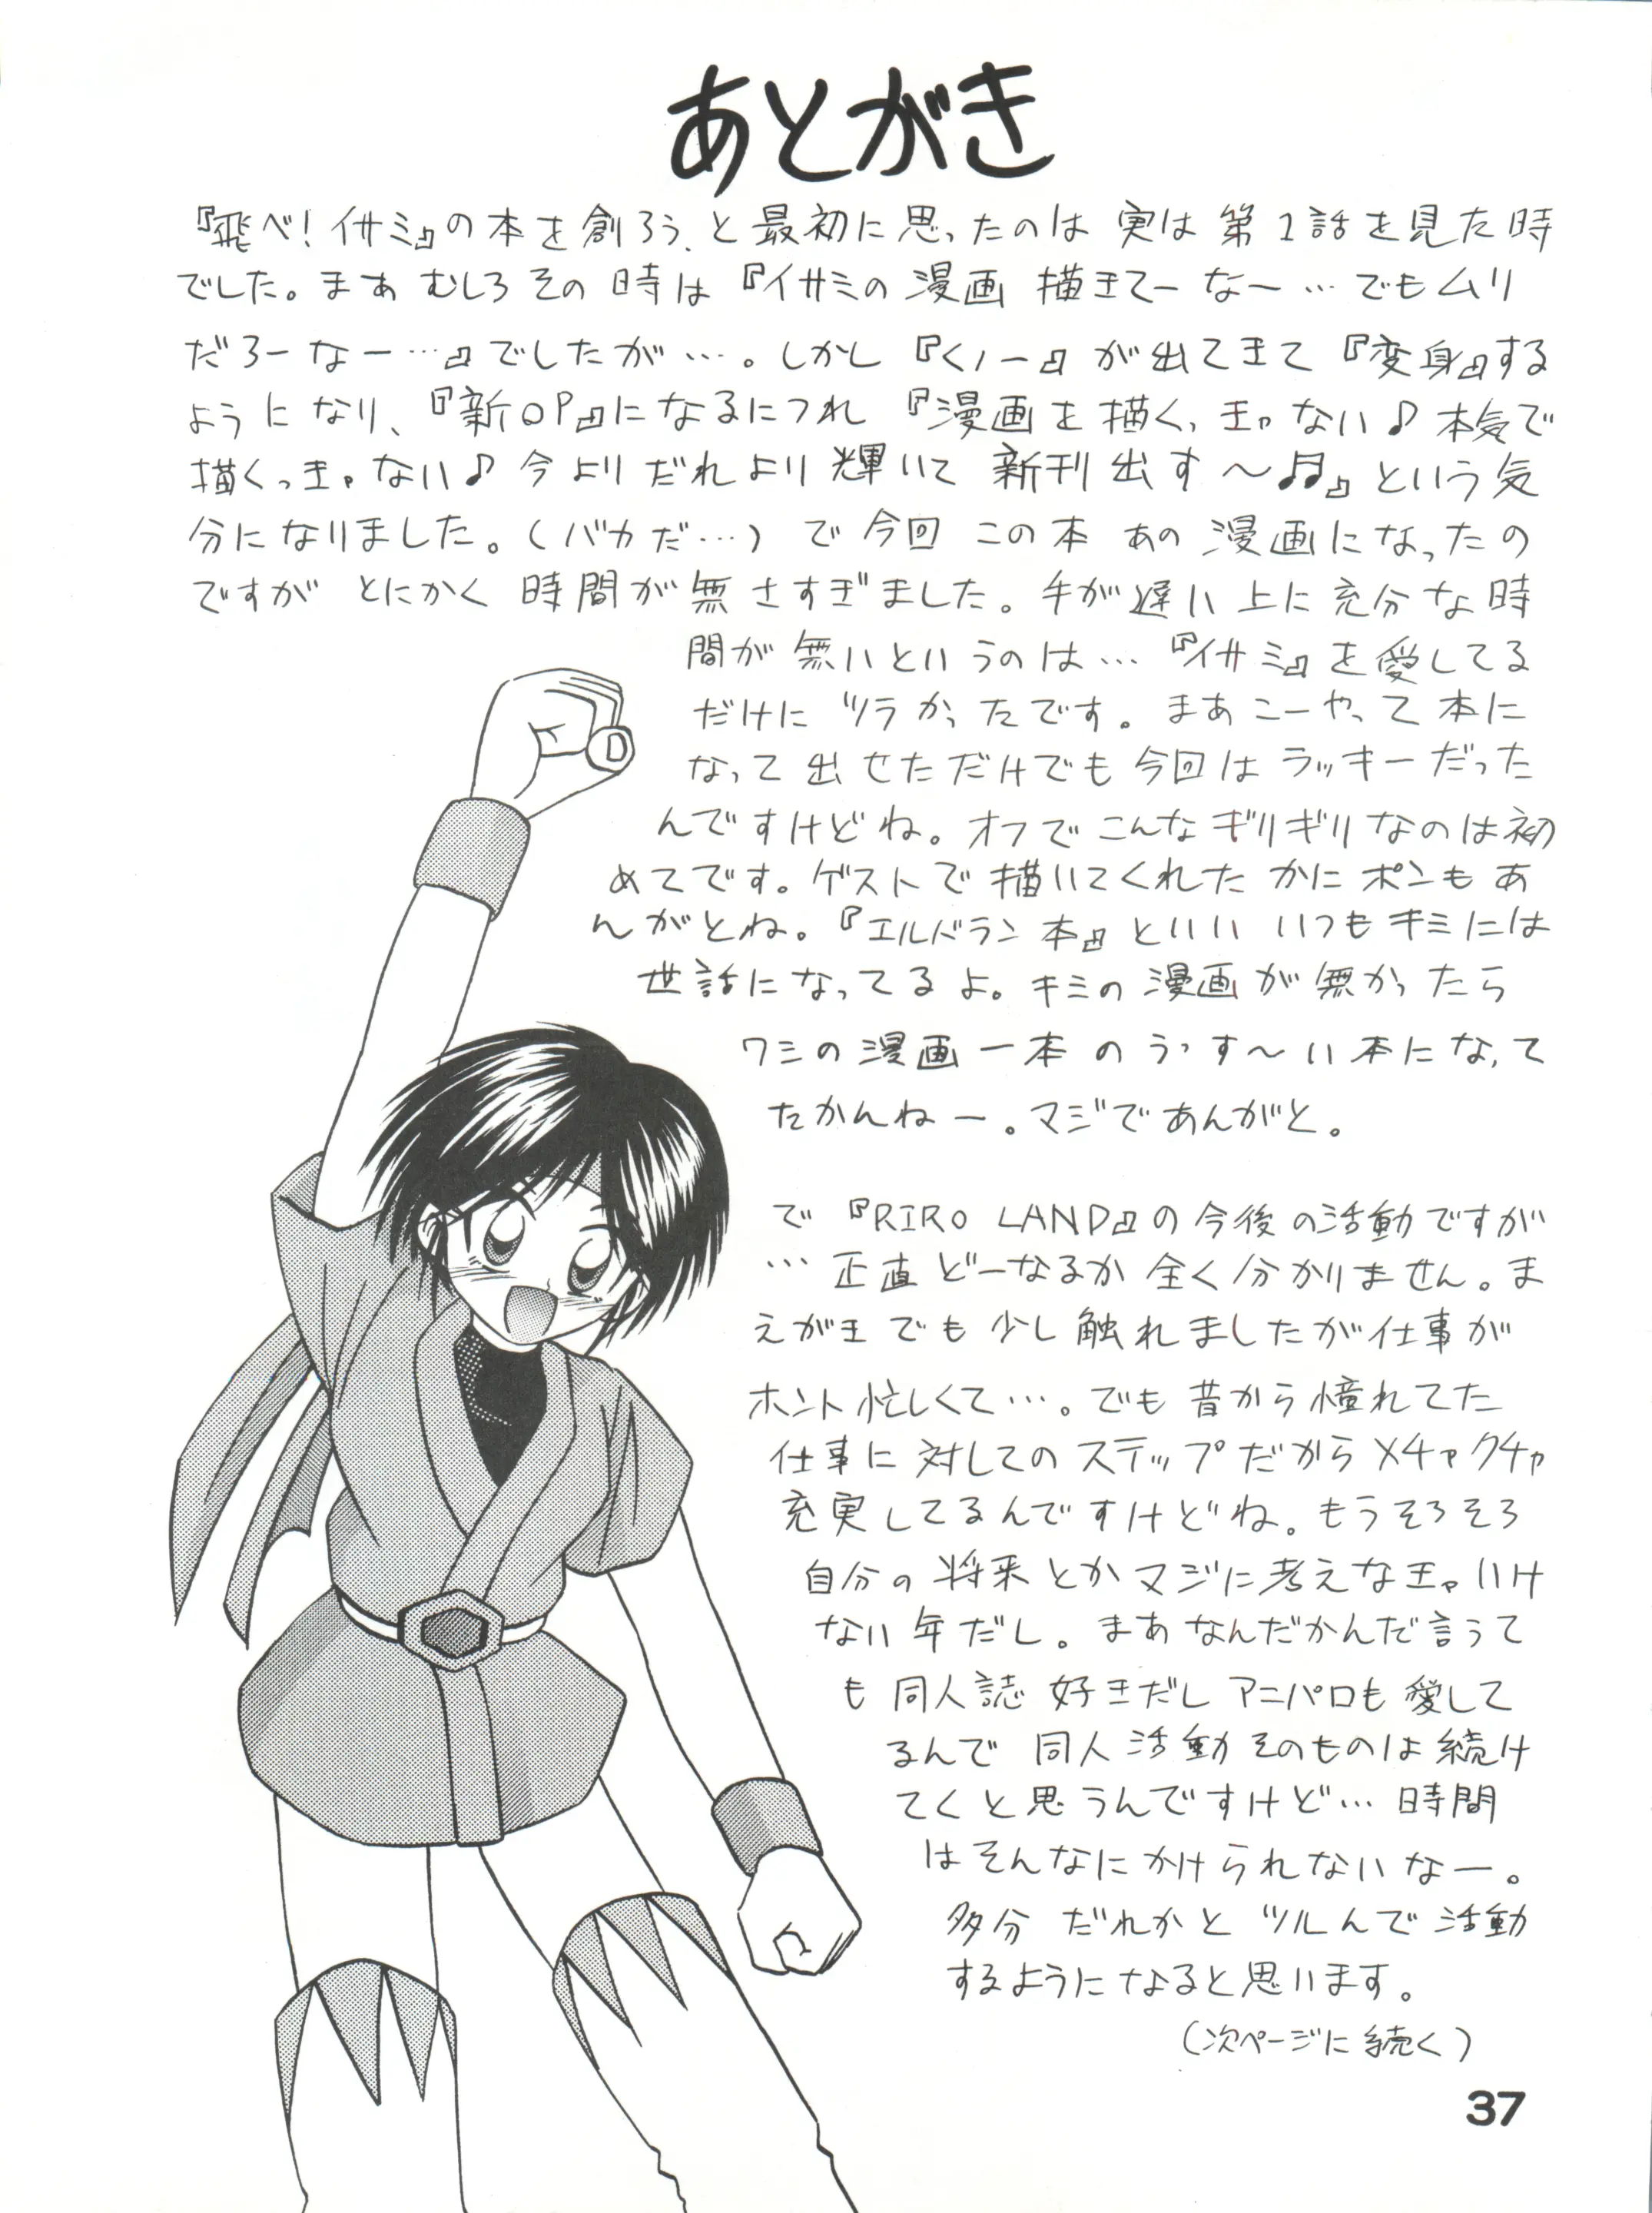 あとがき
『飛べ!イサミ』の本を創ろう、と最初に思ったのは 実は 第1話を見た時
でした。まあ むしろ その 時は『イサミの 漫画 描きてーなー…でもムリ
だろーなー…』でしたが…。しかし『くノ一』が出てきて『変身』する
ようになり、『新OP』になるにつれ『漫画を描くっきゃない♪本気で
描くっきゃない♪今よりだれより輝いて 新刊出す〜♬』という気
分になりました。(バカだ…) で 今回 この本 あの 漫画になったの
ですが とにかく 時間が無さすぎました。手が遅い上に充分な時
間が無いというのは…『イサミ』を愛してる
だけに ツラかったです。まあこーやって本に
なって出せただけでも今回はラッキーだった
んですけどね。オフでこんなギリギリなのは初
めてです。ゲストで描いてくれた かにポンもあ
んがとね。『エルドラン本』といい いつもキミには
世話になってるよ。キミの漫画が無かったら
ワシの漫画一本のうっす〜い本になって
たかんねー。マジであんがと。
で『RIRO LAND』の今後の活動ですが
…正直どーなるか全く分かりません。ま
えがきでも少し触れましたが仕事が
ホント忙しくて…。でも昔から憧れてた
仕事に対してのステップだからメチャクチャ
充実してるんですけどね。もうそろそろ
自分の将来とかマジに考えなきゃいけ
ない年だし。まあなんだかんだ言うて
も同人誌好きだしアニパロも愛して
るんで 同人活動そのものは続け
てくと思うんですけど…時間
はそんなにかけられないなー。
多分 だれかと ツルんで活動
するようになると思います。
(次ページに続く)
37